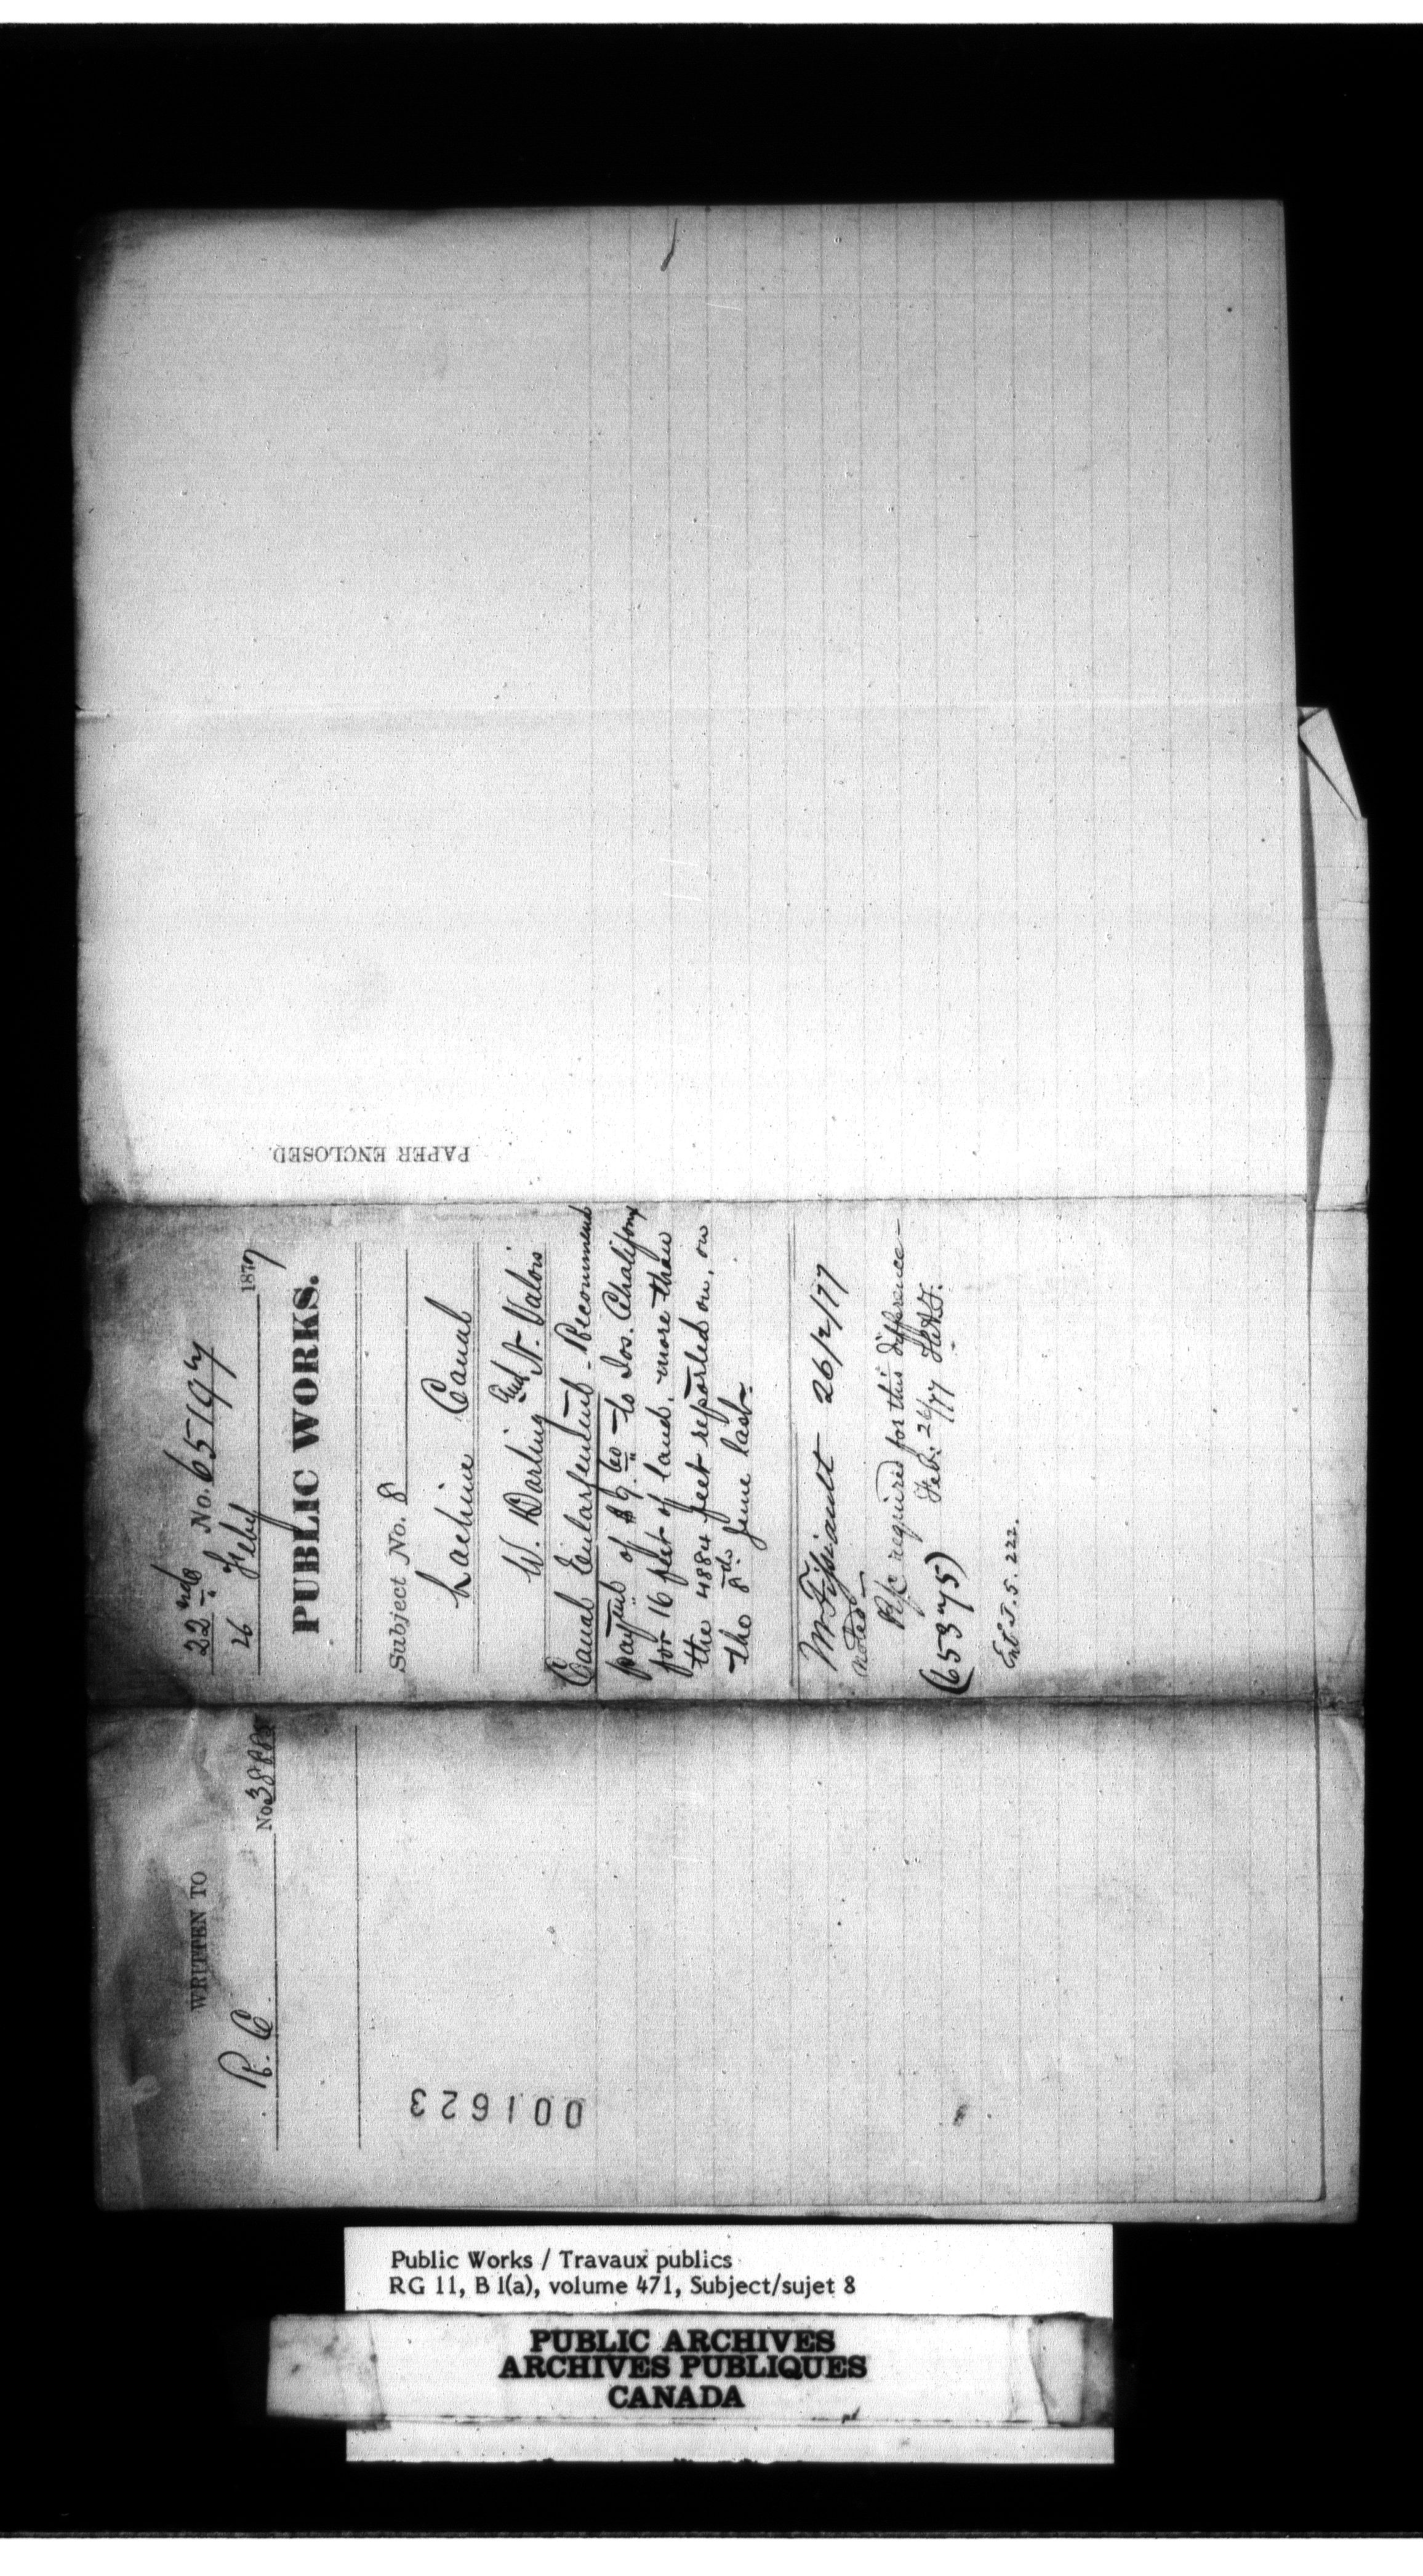 22nd No. 65197
26 Feby 1877
PUBLIC WORKS.
Subject No. 8
Lachine Canal
W. Darling and A. Valois
Canal Enlargement - Recommend
payment of $9.60 to Jos. Chalifoux
for 16 feet of land, more than
the 4884 feet reported on, on
the 8th June last-
Mr Fissiault 26/2/77
noted-
R/c required for this difference-
Feb. 26/77 H.A.F.
(65375)
Ent J. 5. 222.
PAPER ENCLOSED.
WRITTEN TO
R. C. No.
001623
Public Works / Travaux publics
RG 11, B 1(a), volume 471, Subject/sujet 8
PUBLIC ARCHIVES
ARCHIVES PUBLIQUES
CANADA